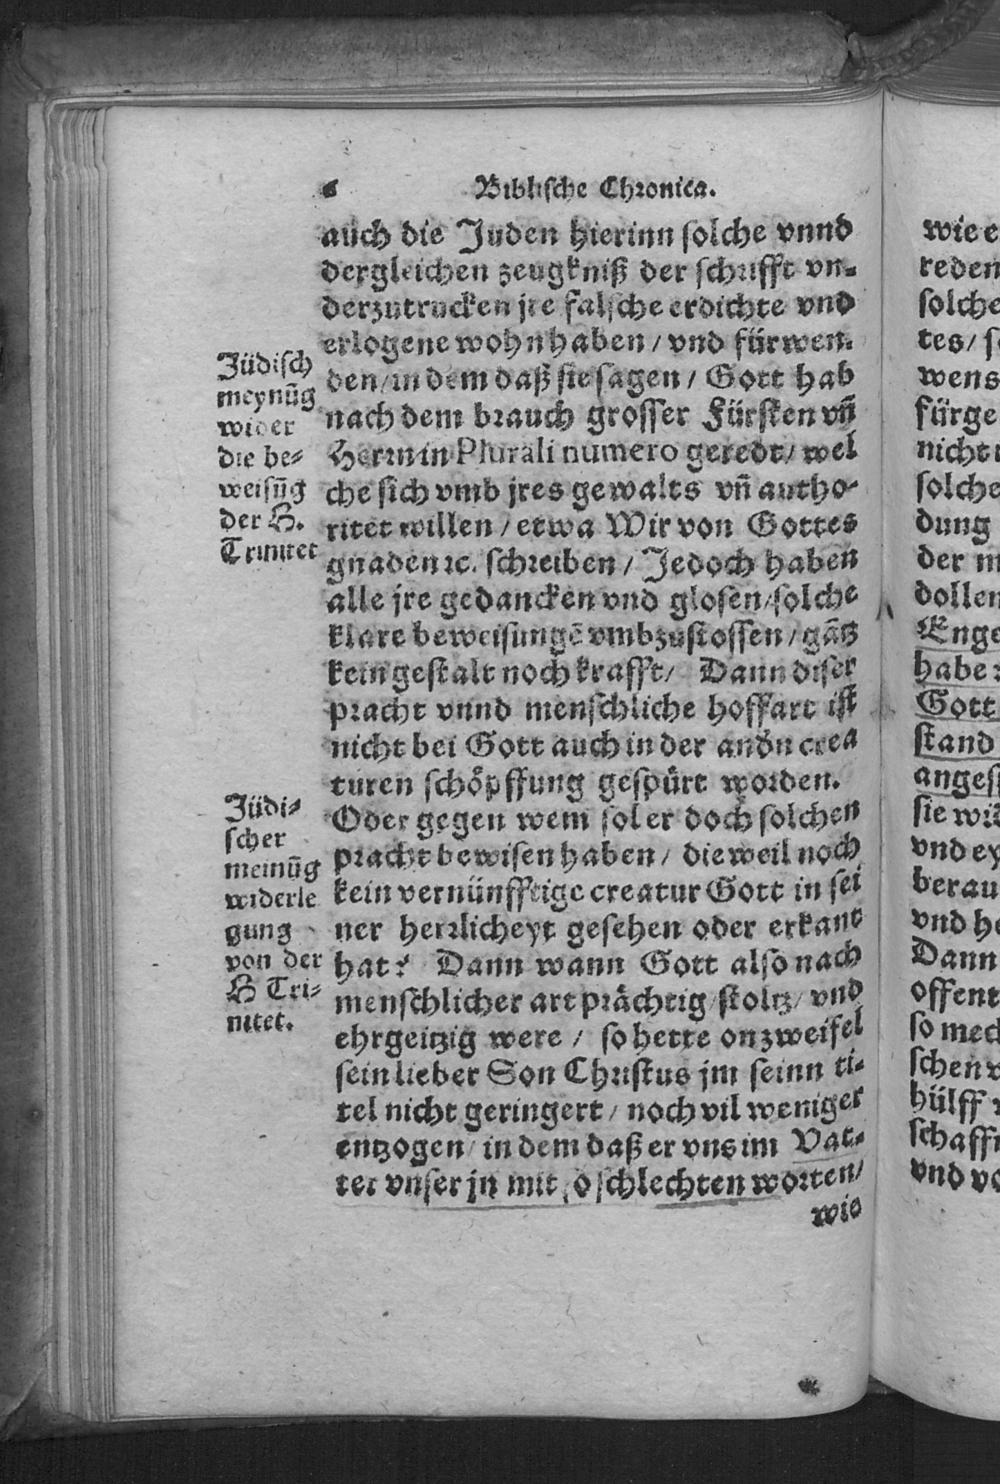 6 Biblische Chronica.
auch die Juden hierinn solche vnnd
dergleichen zeugkniß der schrifft vn-
derzutrucken jre falsche erdichte vnd
erlogene wohn haben / vnd fürwen-
den / in dem daß sie sagen / Gott hab
nach dem brauch grosser Fürsten vñ
Herrn in Plurali numero geredt / wel
che sich vmb jres gewalts vñ autho-
ritet willen / etwa Wir von Gottes
gnaden ꝛc. schreiben / Jedoch haben
alle jre gedancken vnd glosen / solche
klare beweisungē vmbzustossen / gātz
kein gestalt noch krafft / Dann diser
pracht vnnd menschliche hoffart ist
nicht bei Gott auch in der andn crea
turen schöpffung gespürt worden.
Oder gegen wem sol er doch solchen
pracht bewisen haben / die weil noch
kein vernünfftige creatur Gott in sei
ner herrlicheyt gesehen oder erkant
hat? Dann wann Gott also nach
menschlicher art prächtig / stoltz / vnd
ehrgeitzig were / so hette on zweifel
sein lieber Son Christus jm seinn ti-
tel nicht geringert / noch vil weniger
entzogen / in dem daß er vns im Vat-
ter vnser jn mit so schlechten worten /
wie
Jüdisch
meynūg
wider
die be-
weisūg
der H.
Trinitet
Jüdi-
scher
meinūg
widerle
gung
von der
H Tri-
nitet.
wie e
reden
solche
tes / s
wens
fürge
nicht
solche
dung
der m
dollen
Enge
habe
Gott
stand
anges
sie wid
vnd ey
berau
vnd he
Dann
offent
so mec
schen
hülff
schaff
vnd vo